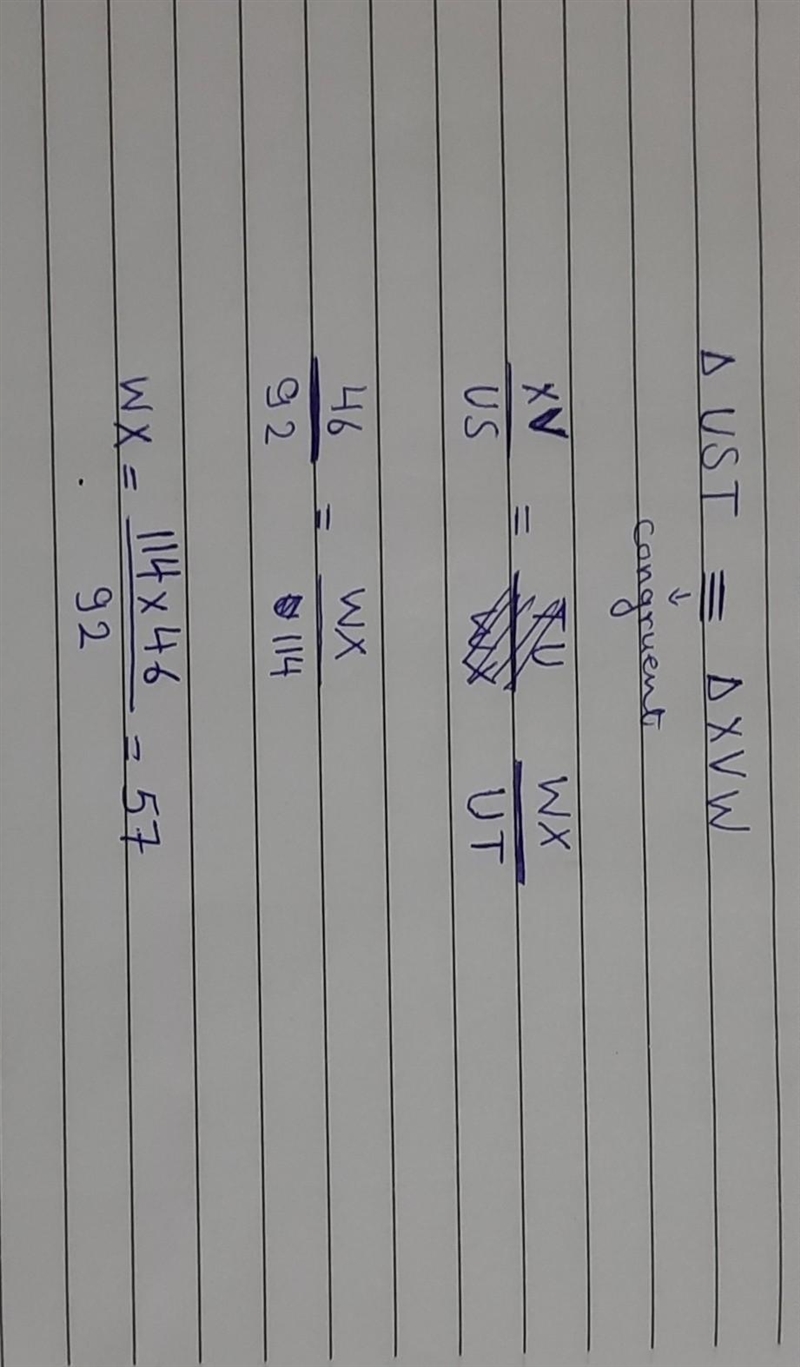 Δ UST ≡ Δ XVW
↓
Congruent
XV/US = WX/UT
46/92 = WX/114
WX = 114 x 46/92 = 57